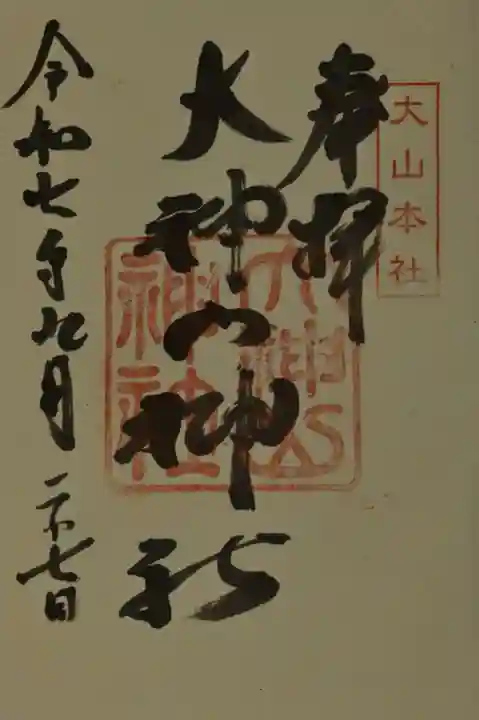 大山本社
奉拝
大神山神社
大神山神社
令和七年九月二十七日